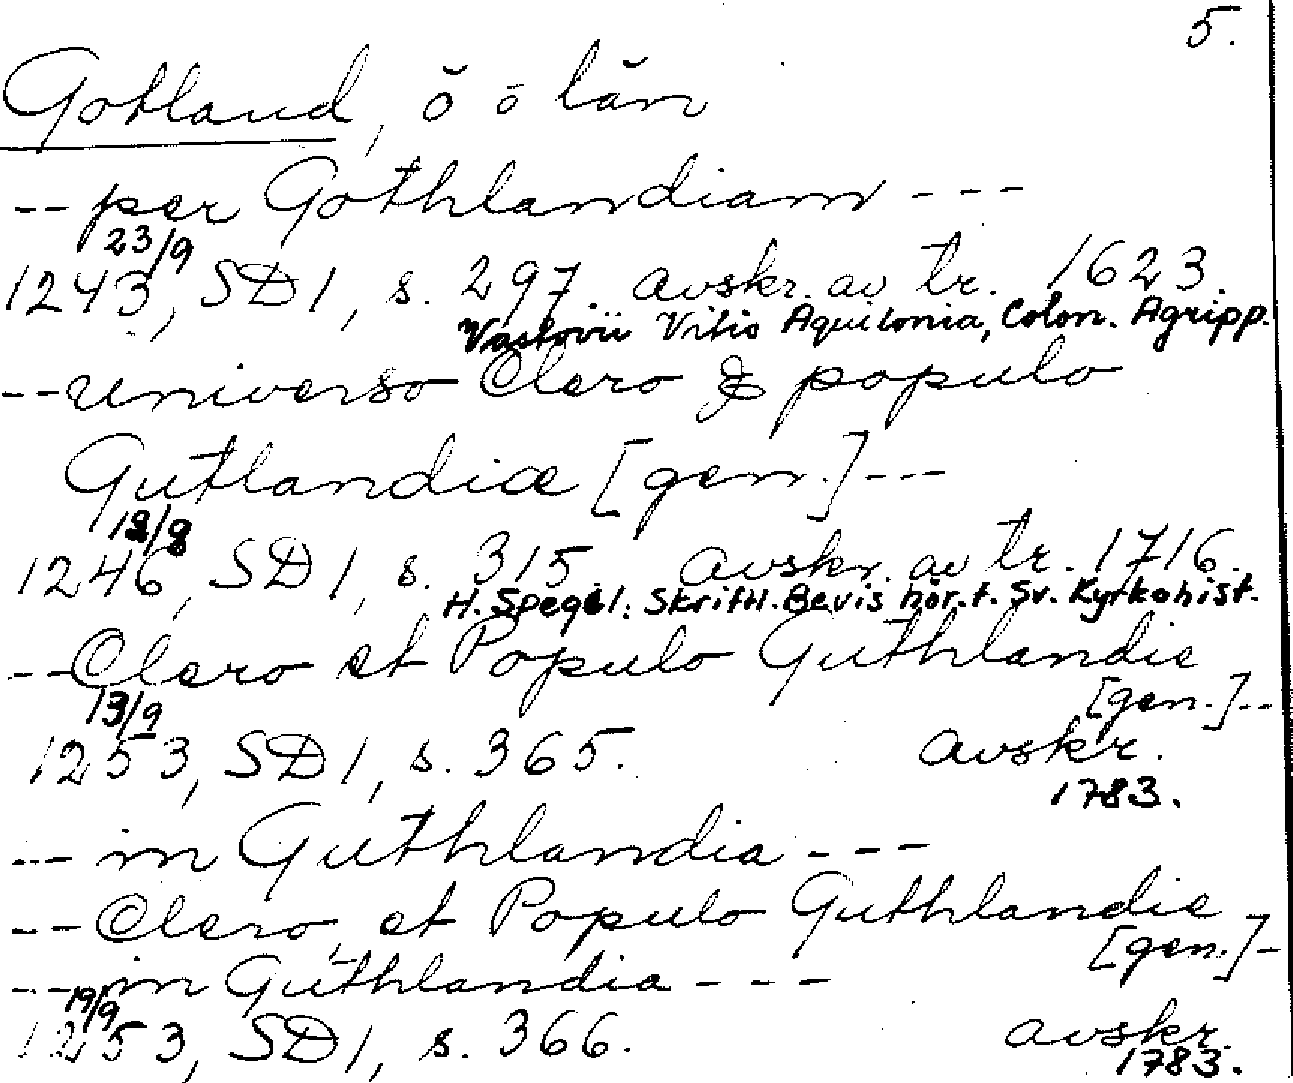 5.
Gotland, ö o län
-- per Gothlandiam ---
23/9
1243, SD 1, s. 297. avskr. av tr. 1623.
Vastovii Vitis Aquilonia, Colon. Agripp.
-- universo Clero & populo
Gutlandiæ [gen.] ---
1246, SD 1, s. 315 avskr. av tr. 1716.
H. Spegel: Skriftl. Bevis hör. t. Sv. Kyrkohist.
-- Clero et Populo Guthlandie
[gen.] --
13/9
1253, SD 1, s. 365. avskr.
1783.
--- in Guthlandia ---
-- Clero, et Populo Guthlandie
[gen.] -
--- in Guthlandia ---
19/9
1253, SD 1, s. 366. avskr.
1783.